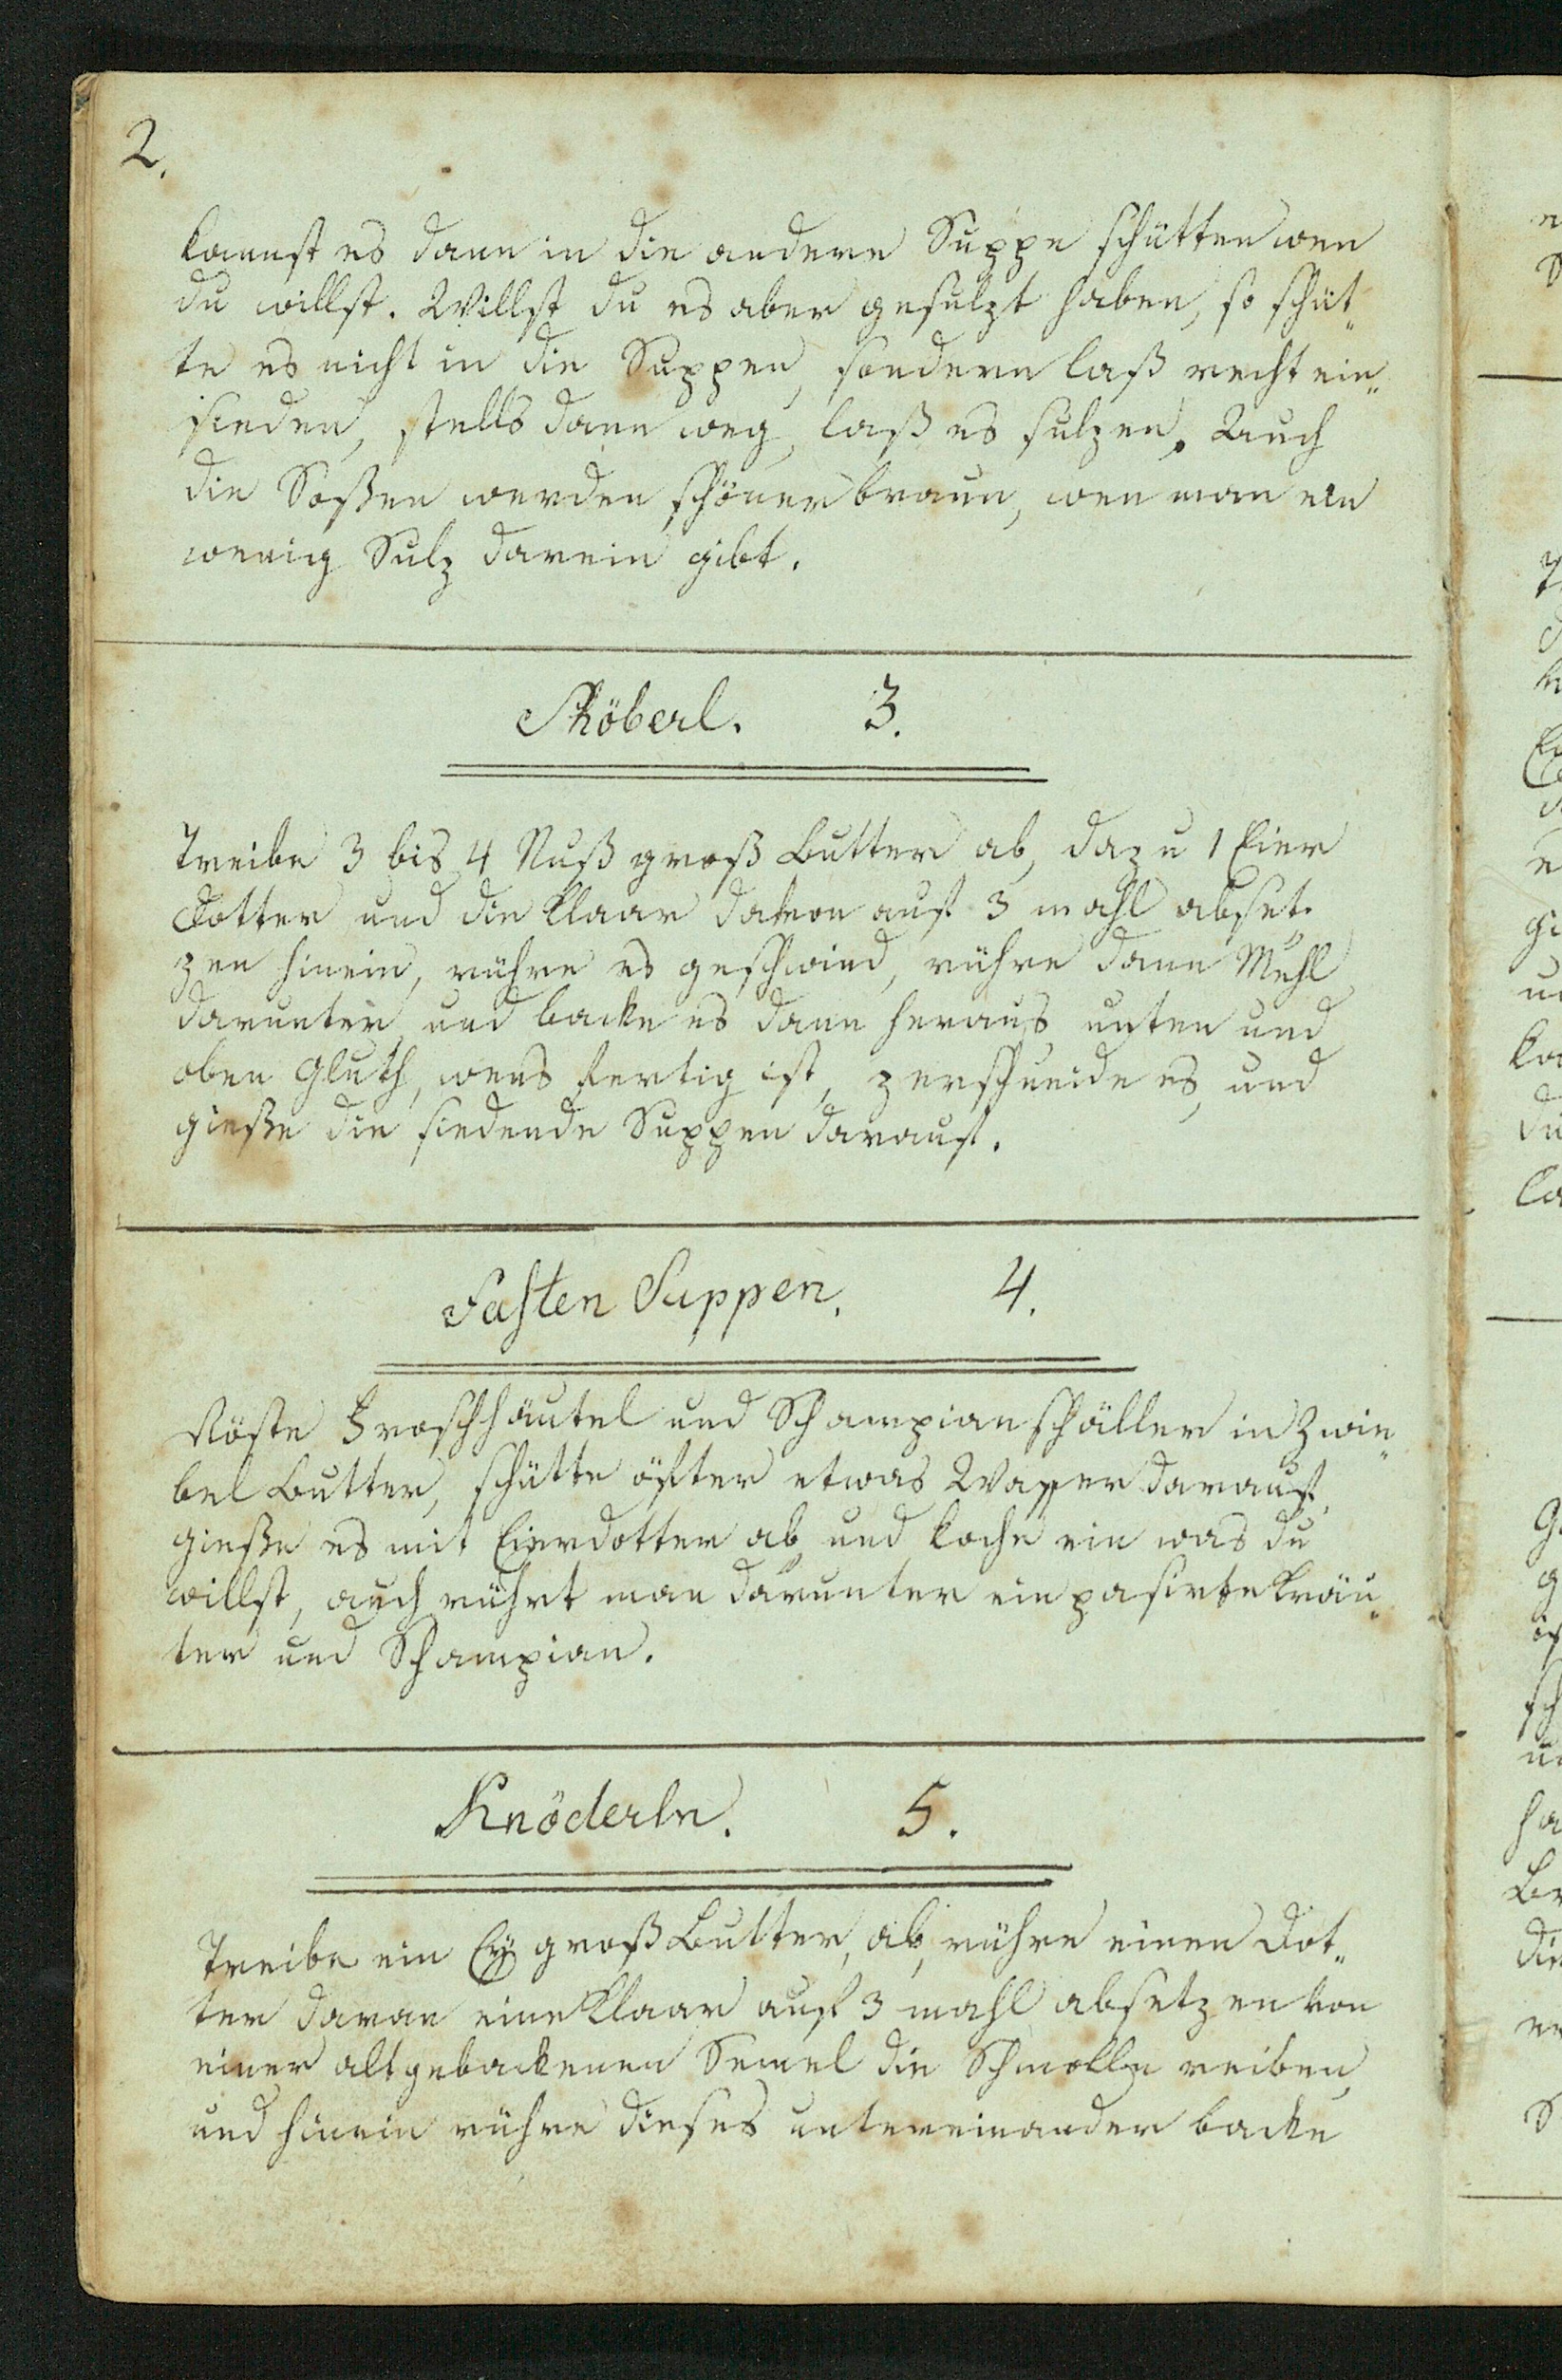 2.
kannst es dann in die andere Suppe schütten wen
du willst. Willst du es aber gesulzt haben, so schüt„
te es nicht in die Suppen, sondern laß recht ein„
sieden, stells dann weg, laß es sulzen. Auch
die Soßen werden schöner braun, wen man ein
wenig Sulz darein gibt.
Schöberl. 3.
Treibe 3 bis 4 Nuß groß Butter ab, dazu 1 Eier
dotter und die Klaar davon auf 3 mahl abset„
zen hinein, rühre es geschwind, rühre dann Mehl
darunter, und backe es dann heraus unten und
oben Gluth, wens fertig ist, zerschneide es, und
gieße die siedende Suppen darauf.
Fasten Suppen. 4.
Röste Froschhäutel und Schampian schäller in Zwie„
bel Butter, schütte öfter etwas Wasser darauf,
gieße es mit Eierdotter ab, und koche ein was du
willst, auch rührt man darunter ein pasirte Kräu„
ter und Schampian.
Knöderln. 5.
Treibe ein Eÿ groß Butter, ab, rühre einen Dot„
ter daran eine Klaar auf 3 mahl absetzen von
einer altgebackenen Semel die Schmolln reiben,
und hinein rühre dieses untereinander backe